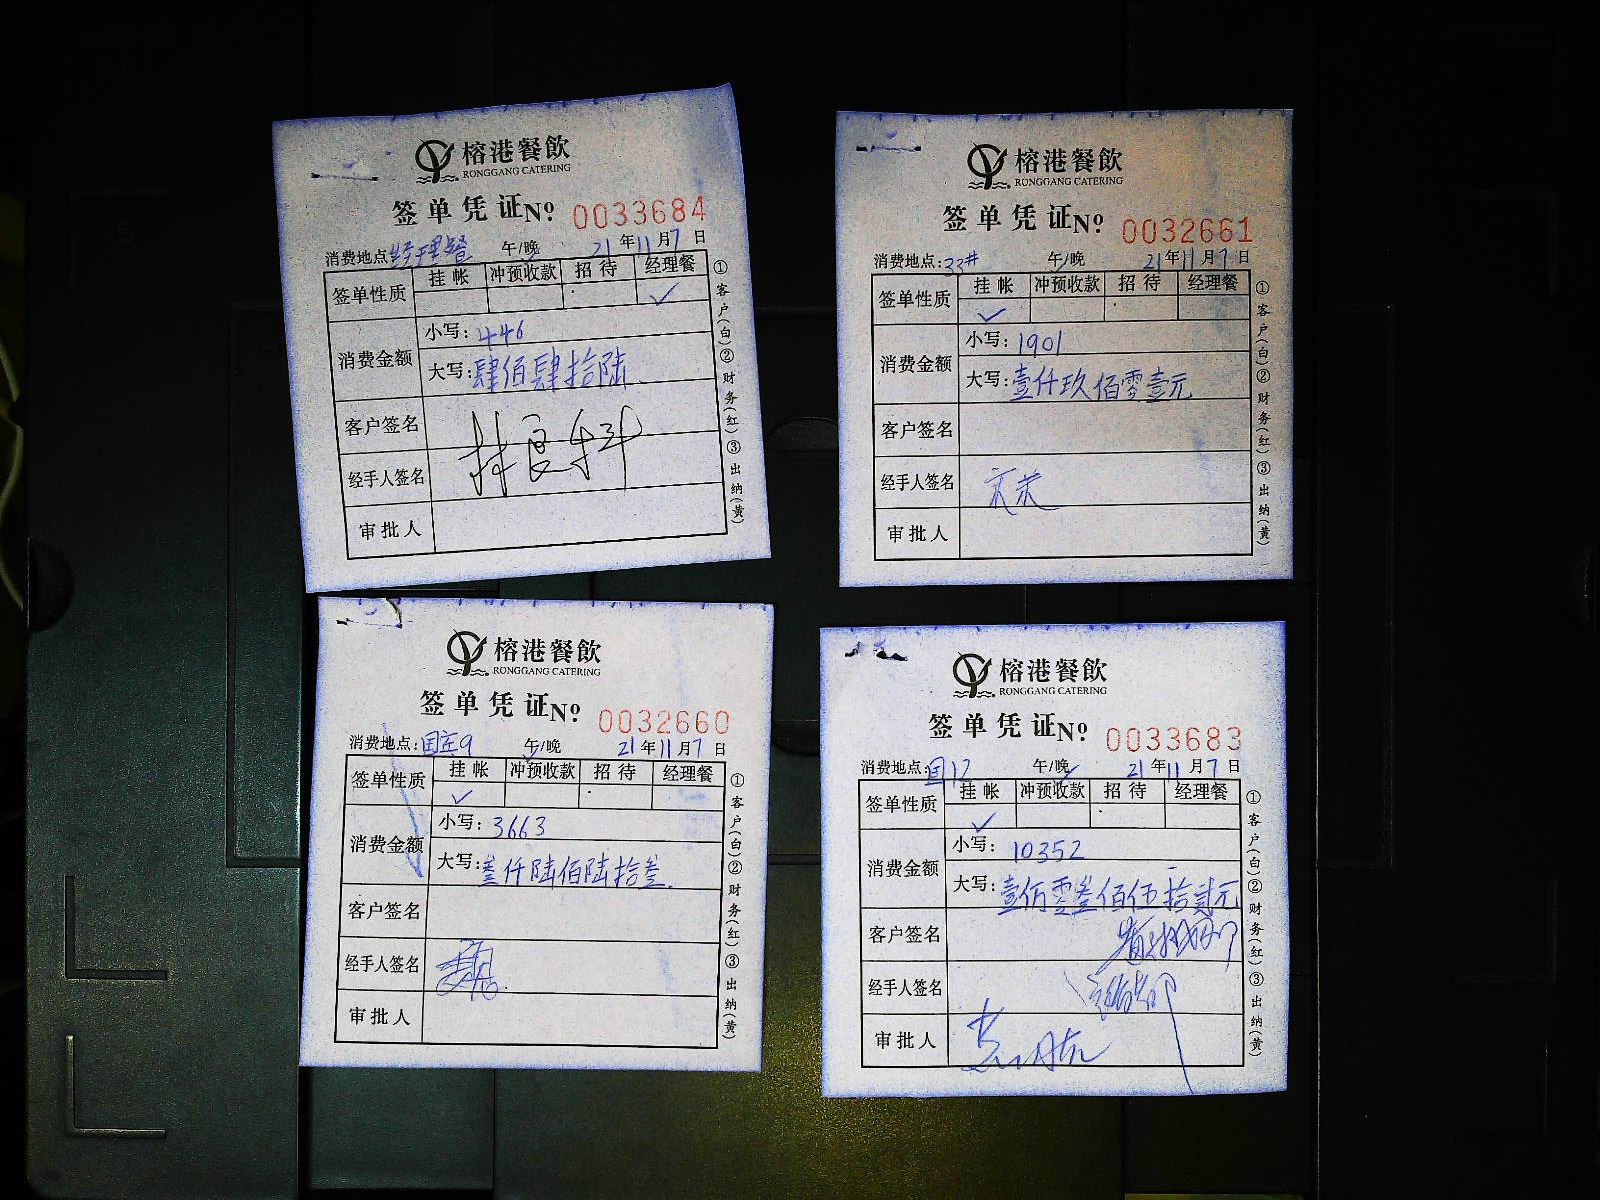 榕港餐飲
RONGGANG CATERING
签单凭证No 0033684
消费地点:经理餐 午/晚 21年11月7日
签单性质 挂帐 冲预收款 招待 经理餐
✓
消费金额
小写:446
大写:肆佰肆拾陆
客户签名
经手人签名
审批人
①客户(白)②财务(红)③出纳(黄)
榕港餐飲
RONGGANG CATERING
签单凭证No 0032661
消费地点:33# 午/晚 21年11月7日
签单性质 挂帐 冲预收款 招待 经理餐
✓
消费金额
小写:1901
大写:壹仟玖佰零壹元
客户签名
经手人签名
审批人
①客户(白)②财务(红)③出纳(黄)
榕港餐飲
RONGGANG CATERING
签单凭证No 0032660
消费地点: 9 午/晚 21年11月7日
签单性质 挂帐 冲预收款 招待 经理餐
✓
消费金额
小写:3663
大写:叁仟陆佰陆拾叁
客户签名
经手人签名
审批人
①客户(白)②财务(红)③出纳(黄)
榕港餐飲
RONGGANG CATERING
签单凭证No 0033683
消费地点:国12 午/晚 21年11月7日
签单性质 挂帐 冲预收款 招待 经理餐
✓
消费金额
小写:10352
大写:壹 零叁佰伍拾贰元
客户签名
经手人签名
审批人
①客户(白)②财务(红)③出纳(黄)